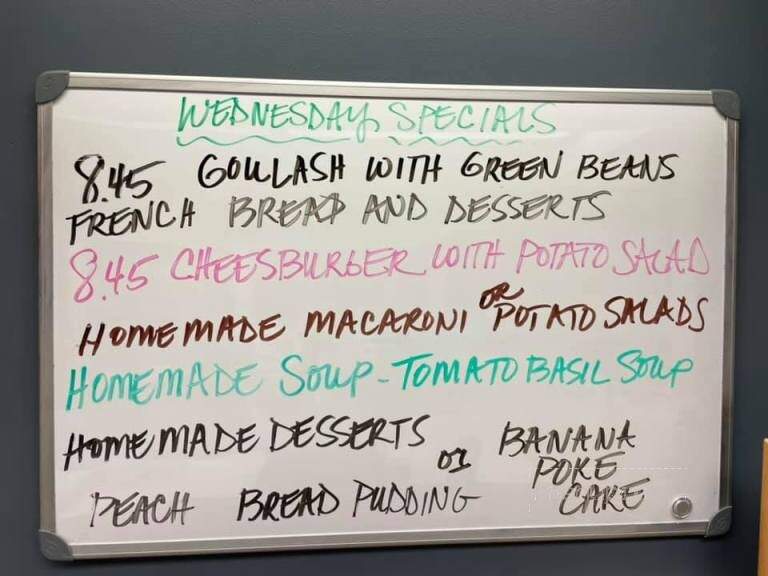 WEDNESDAY SPECIALS
8.45 GOULLASH WITH GREEN BEANS
FRENCH BREAD AND DESSERTS
8.45 CHEESBURGER WITH POTATO SALAD
HOMEMADE MACARONI OR POTATO SALADS
HOMEMADE SOUP - TOMATO BASIL SOUP
HOMEMADE DESSERTS
PEACH BREAD PUDDING
OR
BANANA
POKE
CAKE